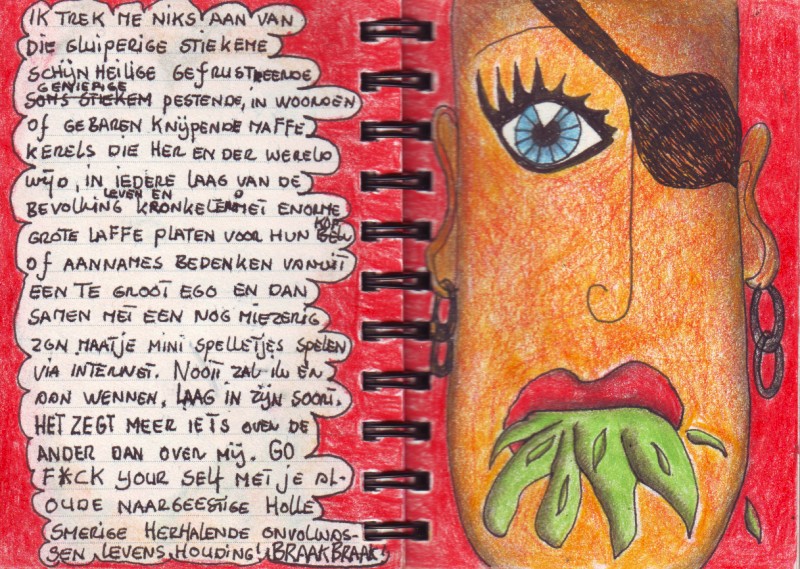 IK TREK ME NIKS AAN VAN
DIE GLUIPERIGE STIEKEME
SCHIJNHEILIGE GEFRUSTREENDE
GENIEPIGE
SOMS STIEKEM PESTENDE, IN WOORDEN
OF GEBAREN KNIJPENDE MAFFE
KERELS DIE HER EN DER WERELD
WIJD, IN IEDERE LAAG VAN DE
LEVEN EN
BEVOLKING KRONKELEND MET ENORME
GROTE LAFFE PLATEN VOOR HUN KOP
OF AANNAMES BEDENKEN VANUIT
EEN TE GROOT EGO EN DAN
SAMEN MET EEN NOG MIEZERIG
ZGN MAATJE MINI SPELLETJES SPELEN
VIA INTERNET. NOOIT ZAL IK ER
AAN WENNEN, LAAG IN ZIJN SOORT.
HET ZEGT MEER IETS OVER DE
ANDER DAN OVER MIJ. GO
F*CK YOUR SELF MET JE AL-
OUDE NAARGEESTIGE HOLLE
SMERIGE HERHALENDE ONVOLWAS-
SEN LEVENS HOUDING! BRAAKBRAAK!